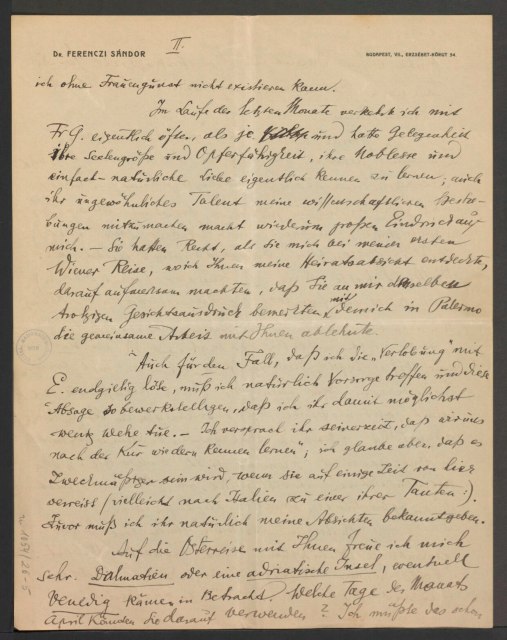 II.
Dr. FERENCZI SÁNDOR
BUDAPEST, VII., ERZSÉBET-KÖRUT 54.
ich ohne Frauengunst nicht existieren kann.
Im Laufe der letzten Monate verkehrte ich mit
Fr G. eigentlich öfter, als je und hatte Gelegenheit
ihre Seelengröße und Opferfähigkeit, ihre Noblesse und
einfach-natürliche Liebe eigentlich kennen zu lernen; auch
ihr ungewöhnliches Talent meine wissenschaftlichen Bestre-
bungen mitzumachen macht wiederum großen Eindruck auf
mich. — Sie hatten Recht, als Sie mich bei meiner ersten
Wiener Reise, wo ich Ihnen meine Heiratsabsicht entdeckte,
darauf aufmerksam machten, daß Sie an mir denselben
trotzigen Gesichtsausdruck bemerkten, mit dem ich in Palermo
die gemeinsame Arbeit mit Ihnen ablehnte.
Auch für den Fall, daß ich die „Verlobung" mit
E. endgiltig löse, muß ich natürlich Vorsorge treffen und diese
Absage so bewerkstelligen, daß ich ihr damit möglichst
wenig wehe tue. — Ich versprach ihr seinerzeit, daß wir uns
nach der Kur „wiedern kennen lernen"; ich glaube aber, daß es
zweckmäßiger sein wird, wenn sie auf einige Zeit von hier
verreist (vielleicht nach Italien zu einer ihrer Tanten).
Zuvor muß ich ihr natürlich meine Absichten bekanntgeben.
Auf die Osterreise mit Ihnen freue ich mich
sehr. Dalmatien oder eine adriatische Insel, eventuell
Venedig kämen in Betracht. Welche Tage des Monats
April könnten Sie darauf verwenden? Ich müßte das schon